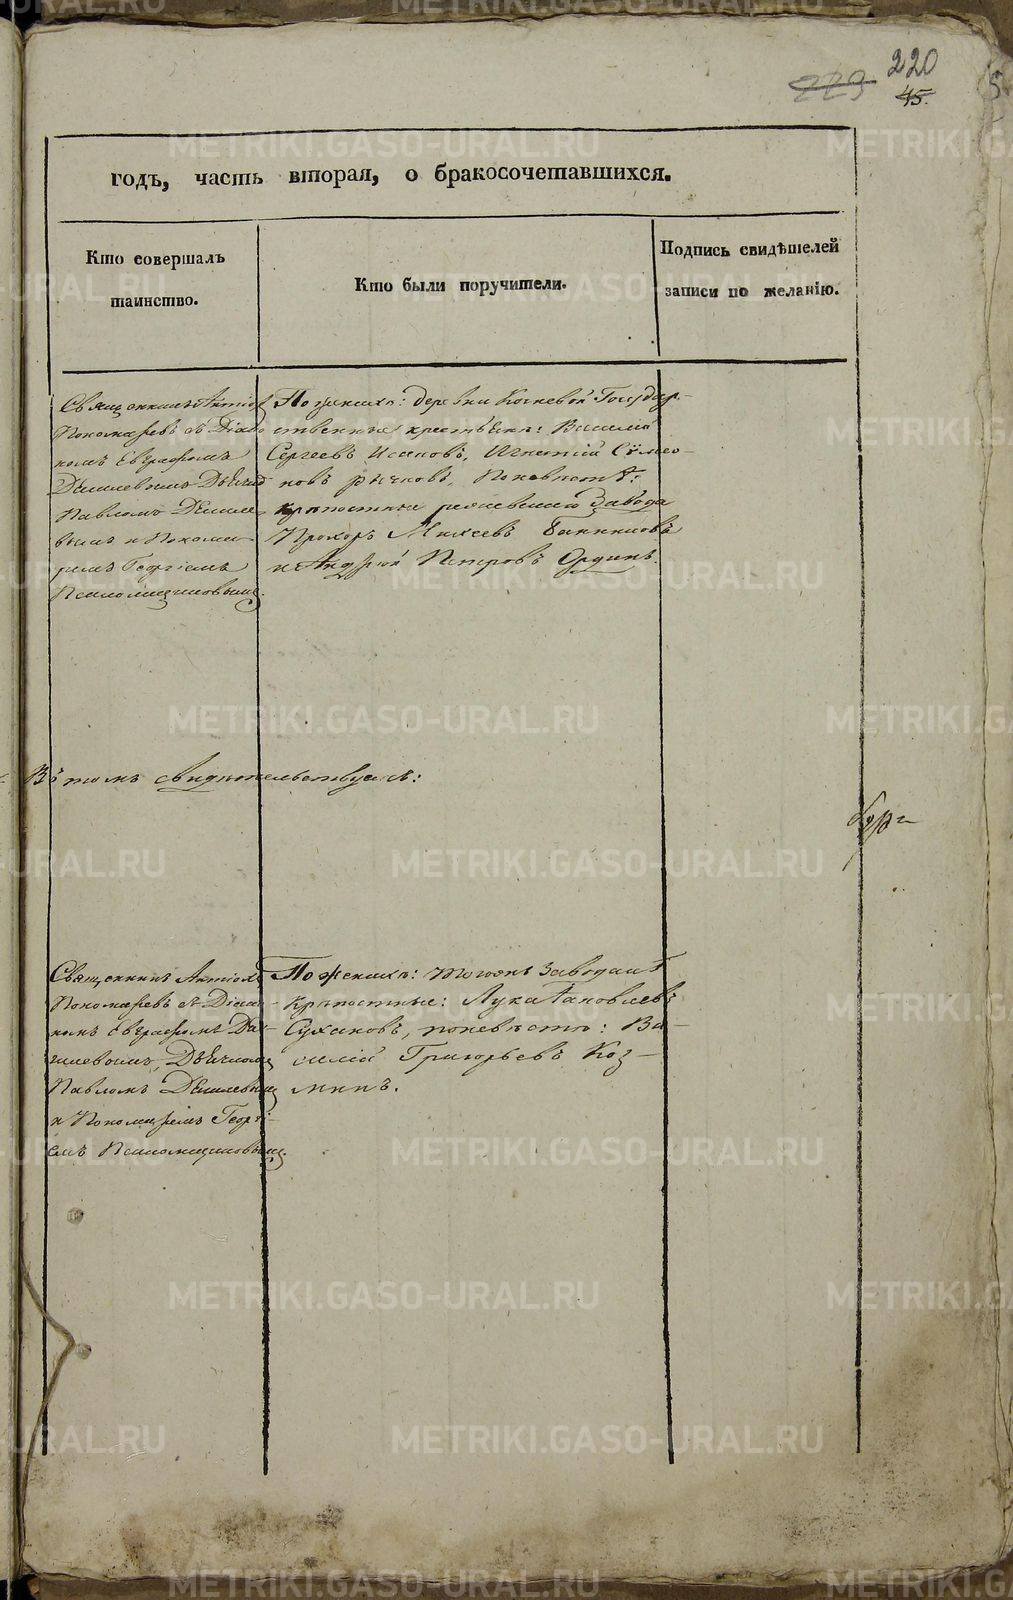 220
223
45.
годъ, часть вторая, о бракосочетавшихся.
Кто совершалъ
таинство.
Кто были поручители.
Подпись свидѣтелей
записи по желанію.
Священникъ Антіох
Пономаревъ съ Діако
номъ Евграфомъ
Павломъ
вымъ и Понома
ремъ Георгіемъ
По женихѣ: деревни Коневой Государ-
ственные крестьяне: Василій
Сергеевъ Исаковъ, Игнатій Сѵмео-
новъ Рычковъ, По невѣстѣ:
крѣпостные Завода
Прохоръ Михеевъ
и Андрей Петровъ Ординъ.
Въ томъ свидѣтельствуемъ:
Священникъ Антіохъ
Пономаревъ съ Діако-
номъ Евграфомъ
Павломъ
и Пономаремъ Георгі-
емъ
По женихѣ: тогожъ Завода
Крѣпостные: Лука Яковлевъ
Сухановъ, по невѣстѣ: Ва-
силій Григорьевъ Коз-
минъ.
METRIKI.GASO-URAL.RU